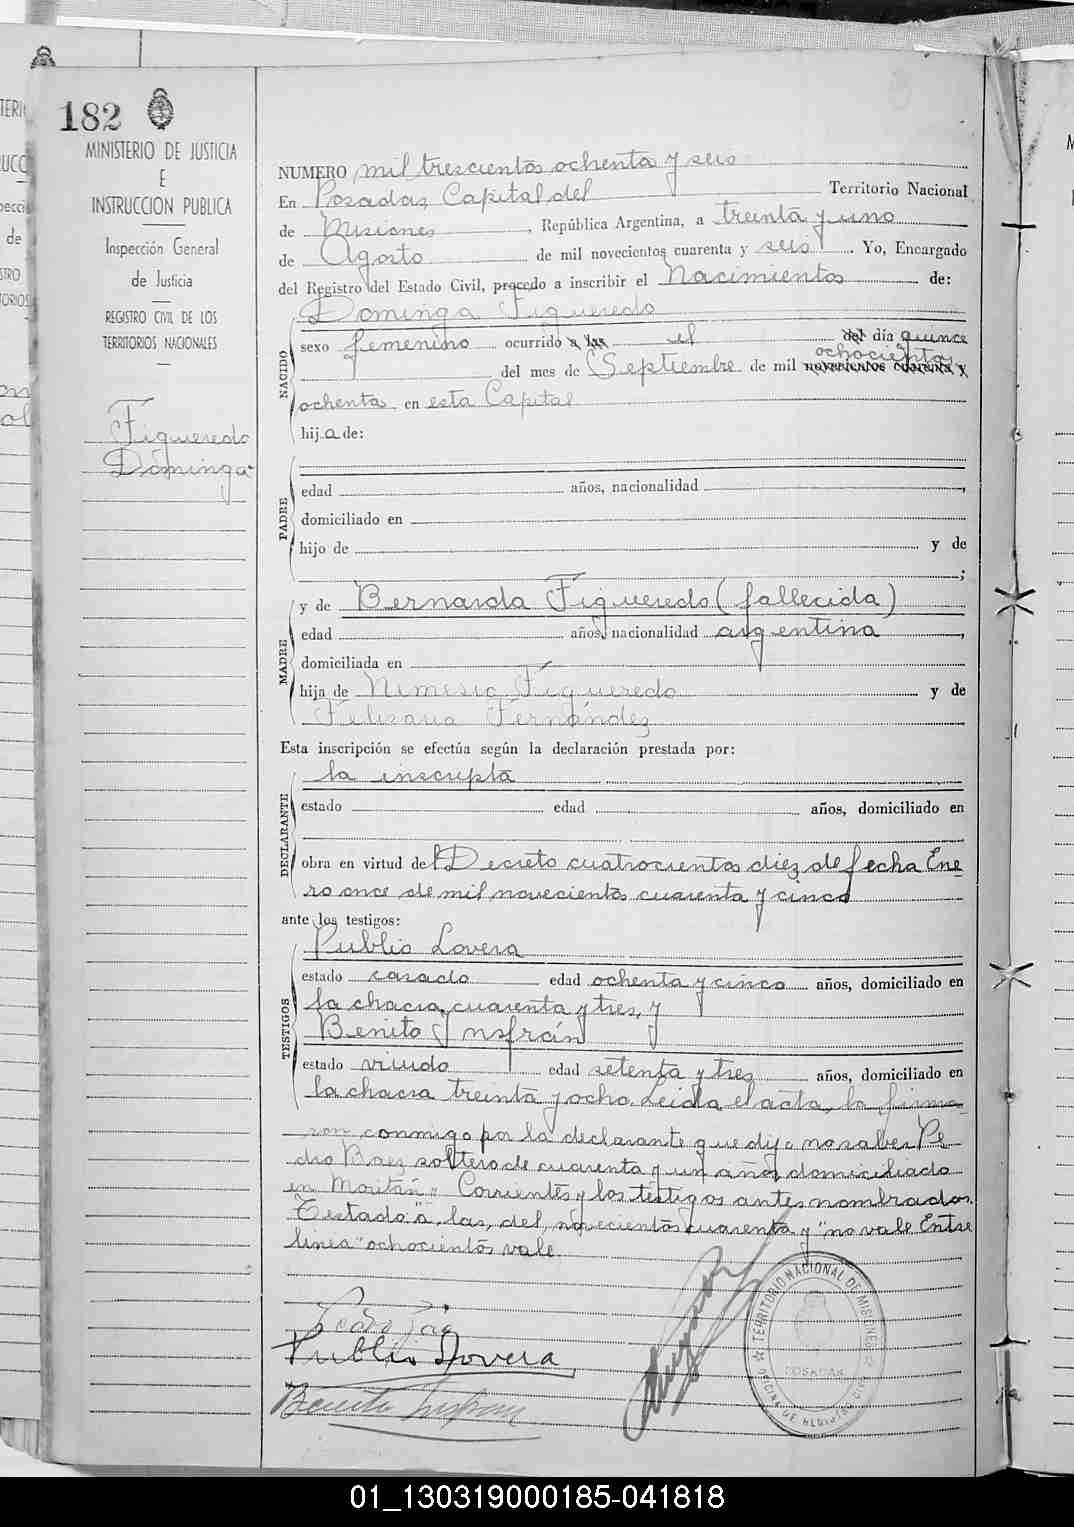 182
MINISTERIO DE JUSTICIA
E
INSTRUCCION PUBLICA
Inspección General
de Justicia
REGISTRO CIVIL DE LOS
TERRITORIOS NACIONALES
Figueredo
Dominga
NUMERO mil trescientos ochenta y seis
En Posadas, Capital del Territorio Nacional
de Misiones, República Argentina, a treinta y uno
de Agosto de mil novecientos cuarenta y seis. Yo, Encargado
del Registro del Estado Civil, procedo a inscribir el Nacimientos de:
NACIDO
Dominga Figueredo
sexo femenino ocurrido a las el del día quince
ochocientos
del mes de Septiembre de mil novecientos cuarenta y
ochenta en esta Capital
hija de:
PADRE
edad años, nacionalidad ,
domiciliado en
hijo de y de
;
MADRE
y de Bernarda Figueredo (fallecida)
edad años, nacionalidad argentina,
domiciliada en
hija de Nimesia Figueredo y de
Feliciana Fernández
Esta inscripción se efectúa según la declaración prestada por:
DECLARANTE
la inscripta
estado edad años, domiciliado en
obra en virtud del Decreto cuatrocientos diez de fecha Ene-
ro once de mil novecientos cuarenta y cinco
ante los testigos:
TESTIGOS
Publio Lovera
estado casado edad ochenta y cinco años, domiciliado en
la chacra cuarenta y tres, y
Benito Insfrán
estado viudo edad setenta y tres años, domiciliado en
la chacra treinta y ocho. Leida el acta, la firma-
ron conmigo por la declarante que dijo no saber Pe-
dro Baez soltero de cuarenta y un años, domiciliado
en Corrientes y los testigos antes nombrados.
Testado: "a las, del, novecientos cuarenta y" no vale. Entre
linea "ochocientos vale.
Publio Lovera
Benito Insfran
TERRITORIO NACIONAL DE MISIONES
POSADAS
OFICINA DE REGISTRO CIVIL
01_130319000185-041818